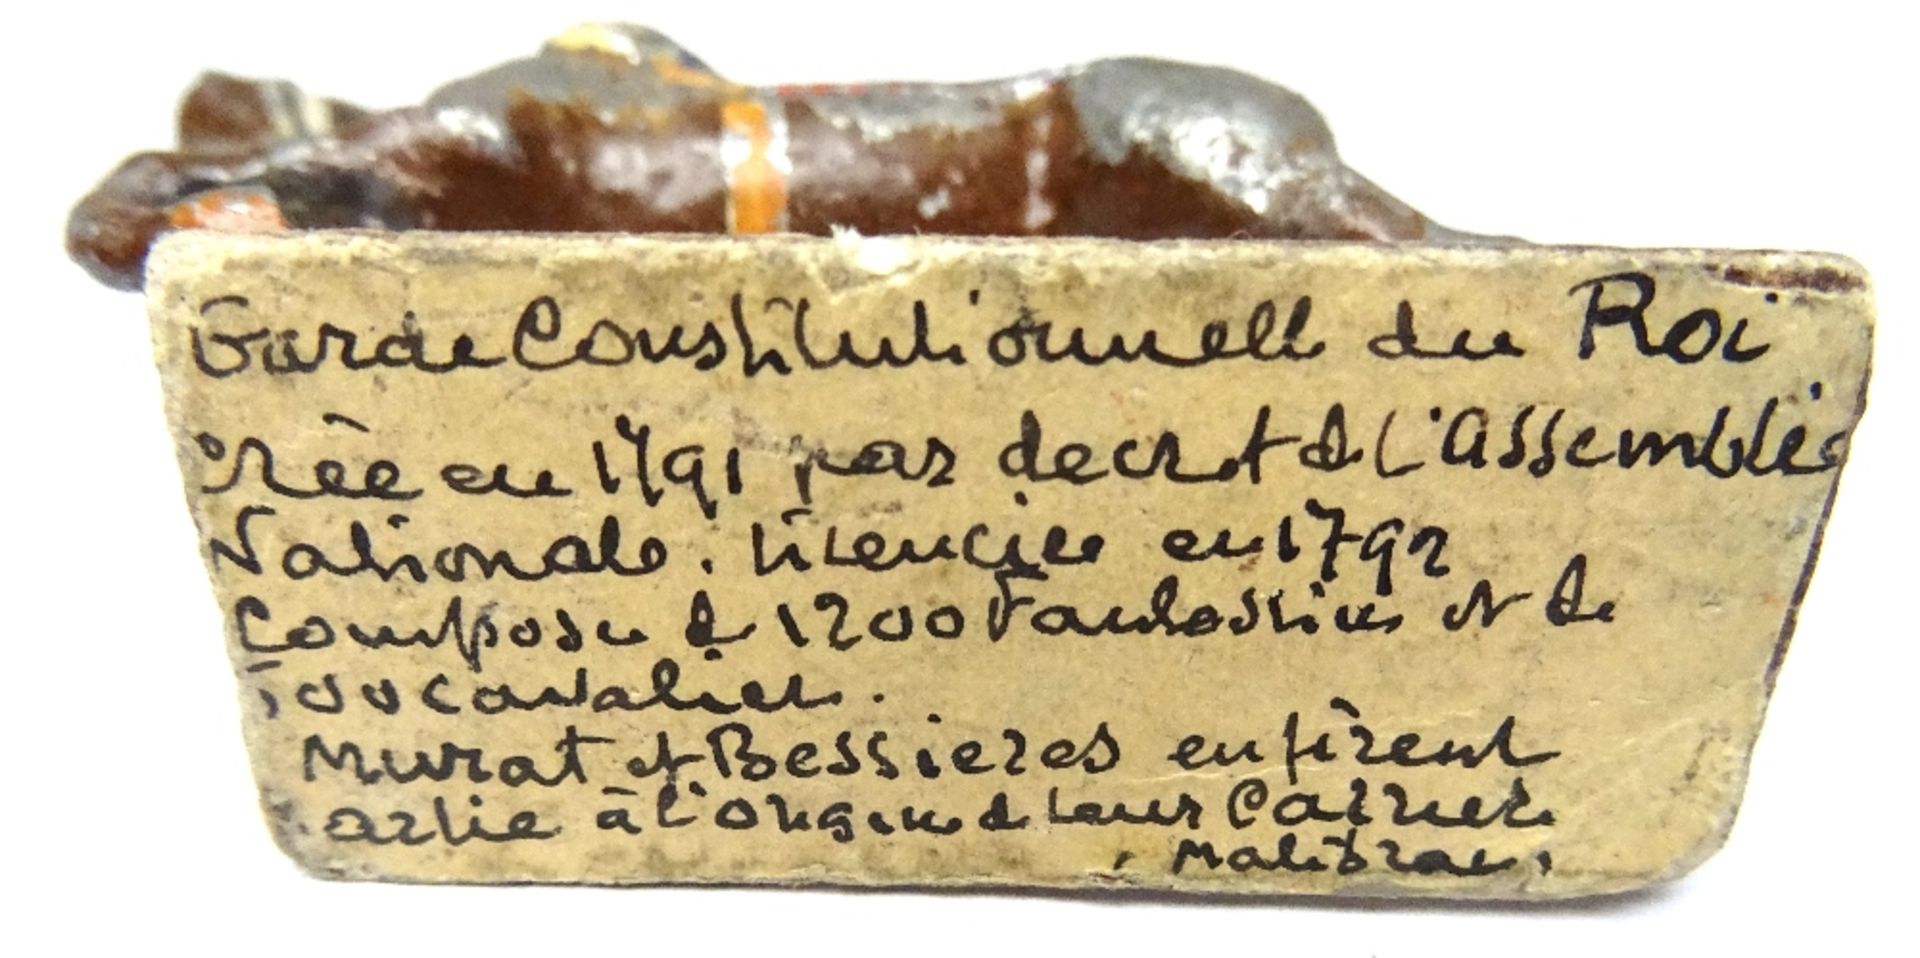 Garde Constitutionnelle du Roi
crèèe en 1791 par decret de l'assemblée
Nationale. licenciée en 1792
Compose de 1200 Fantassins et de
cavaliers.
Murat et Bessieres en fìrent
artie à l'origine de leur Carriere
Malibran.